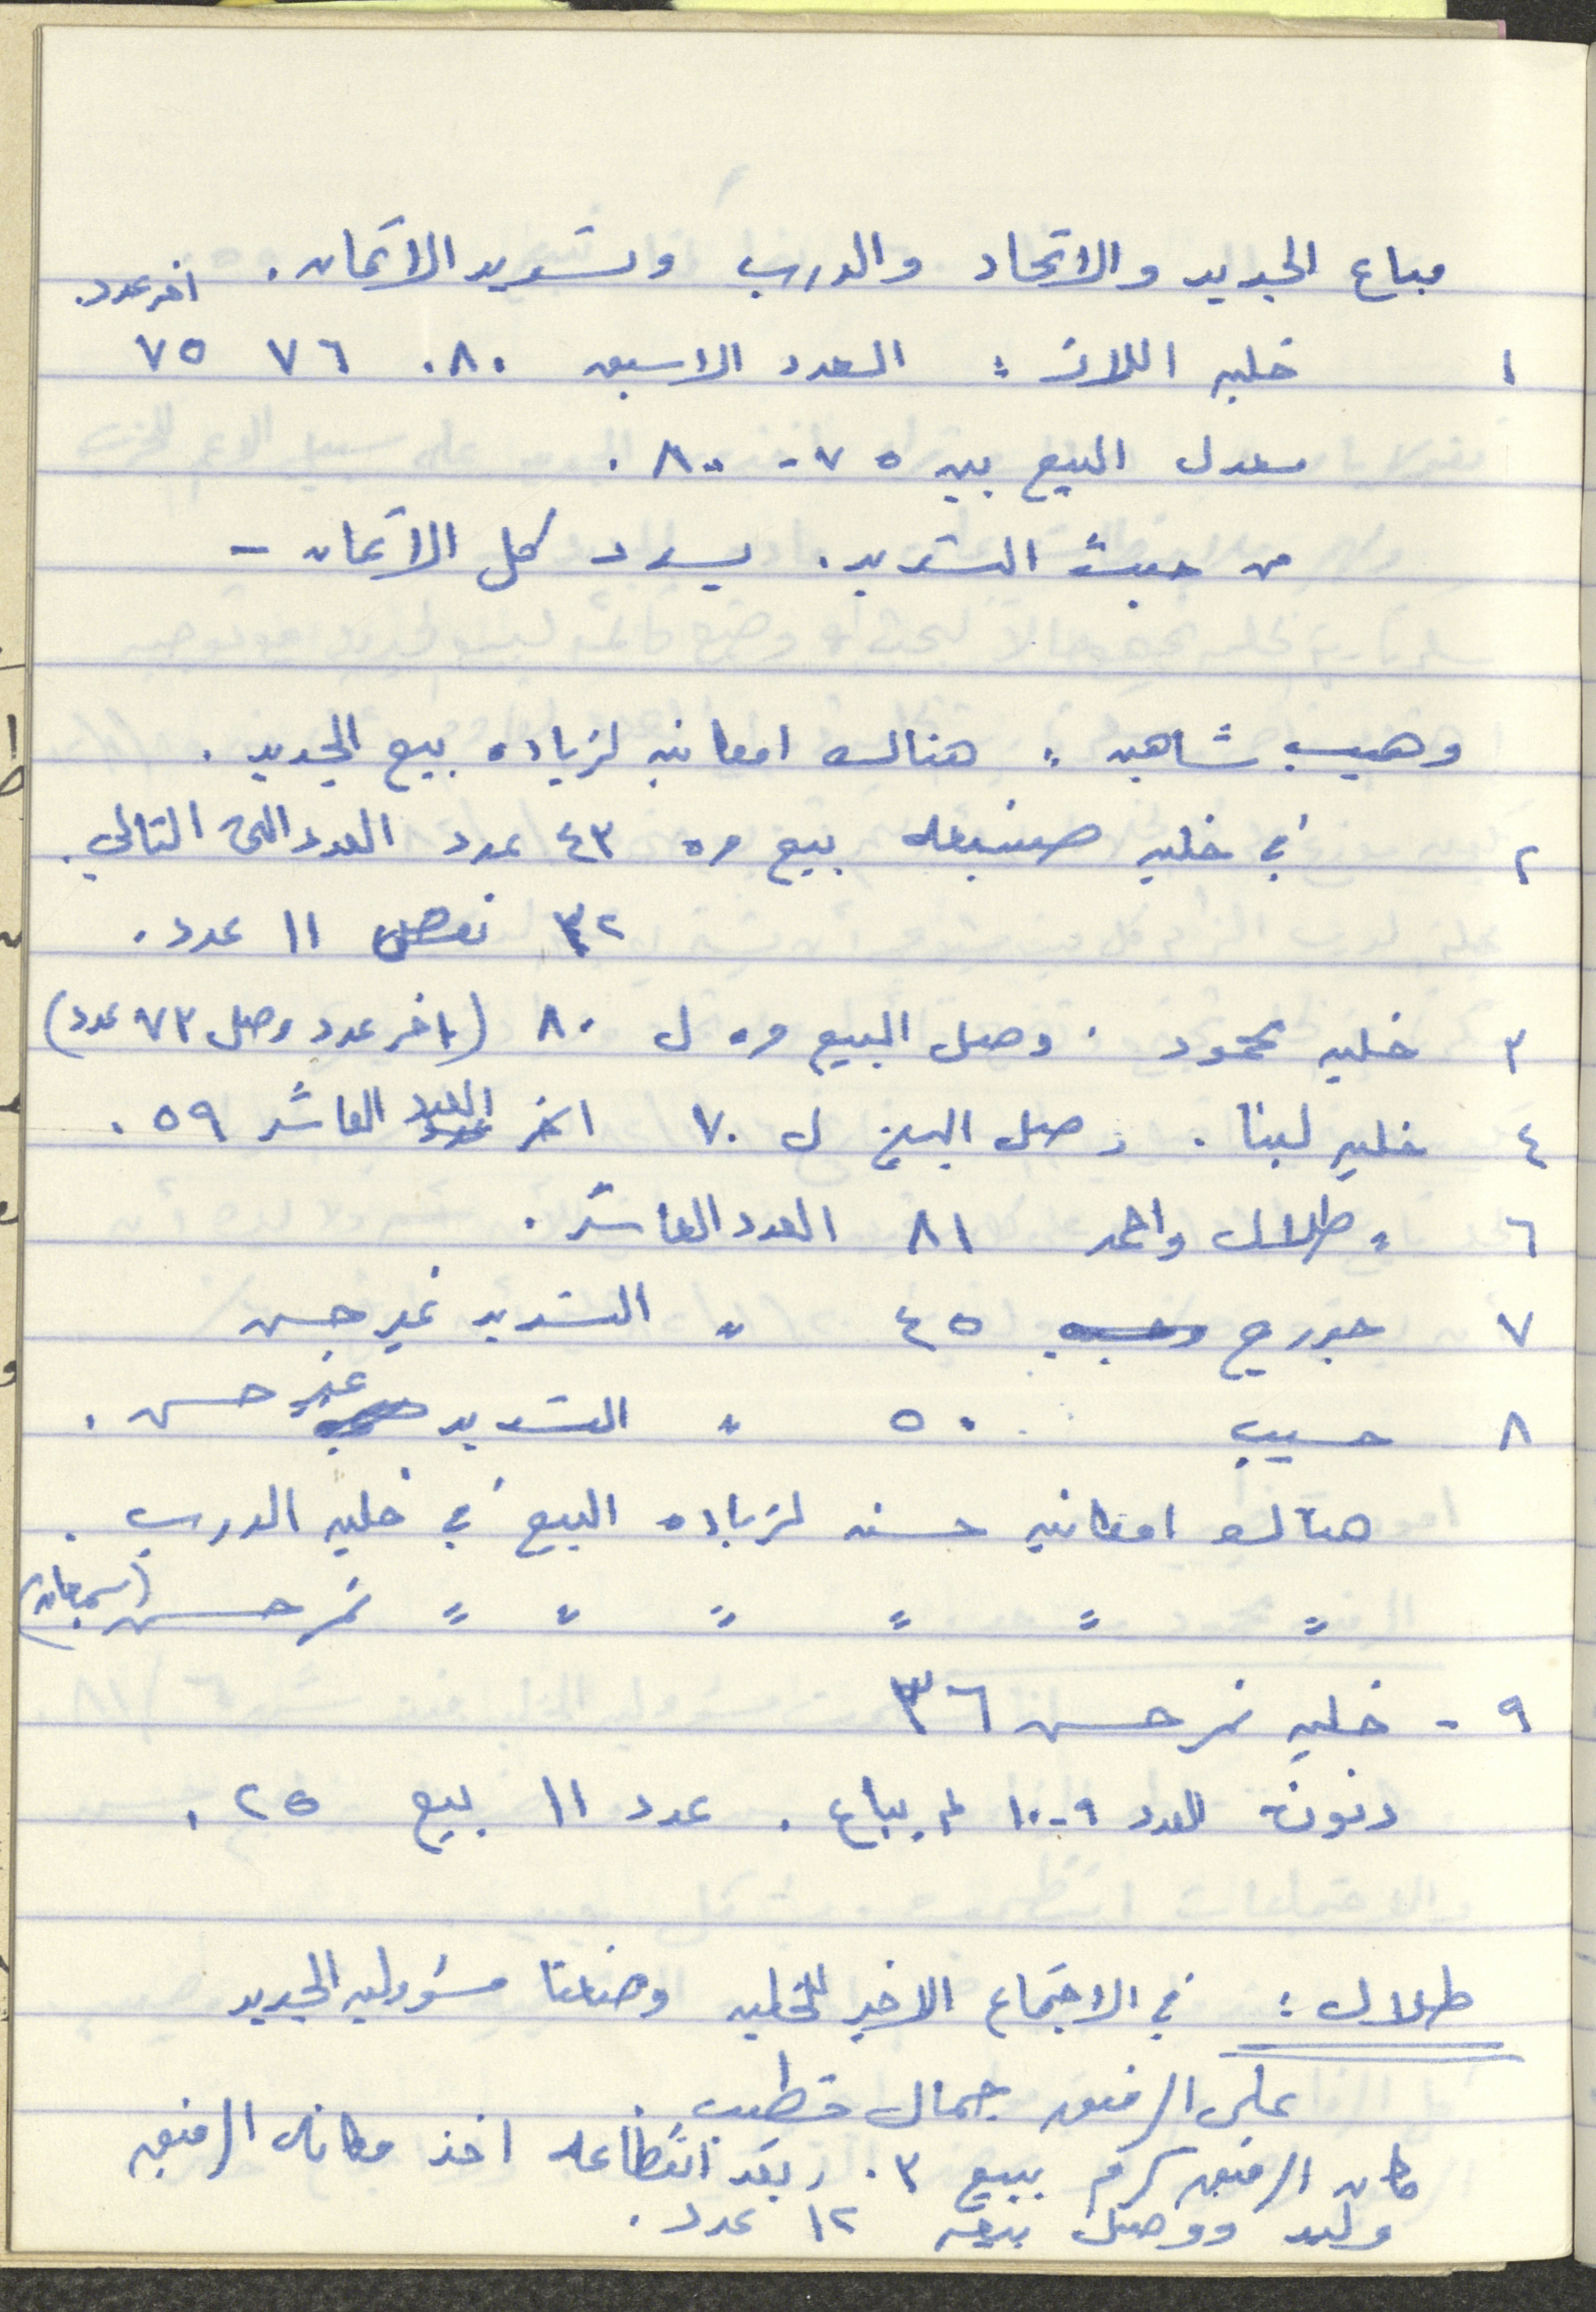 مباع الجديد والاتحاد والدرب وتسديد الاثمان.
اخر عدد.
١ خليه اللاز : العدد الاسبق ٨٠. ٧٦ ٧٥
معدل البيع بين ٧٥ - ٨٠.
من حيث التسديد. يسدد كل الاثمان -
وهيب شاهين : هنالك امكانيه لزياده بيع الجديد.
٢ في خليه صنيعه بيع مره ٤٣ عدد العدد التالي.
٣٢ نقص ١١ عدد.
٣ خليه محمود . وصل البيع مره ل ٨٠ (اخر عدد وصل ٧٣ عدد)
٤ خليه لبنا . وصل البيع ل ٧٠ اخر العدد العاشر ٥٩.
٦ " طلال واحمد ٨١ العدد العاشر.
٧ جورج ٤٥ " التسديد غير حسن
٨ حسيب ٥٠ " التسديد غير حسن.
هنالك امكانيه حسنه لزياده البيع في خليه الدرب.
" " " " " " نمر حسن (سمعان)
٩ - خليه نمر حسن ٣٦
دنون العدد ٩-١٠ لم يباع. عدد ١١ بيع ٢٥.
طلال : في الاجتماع الاخير للخليه وضعنا مسؤوليه الجديد
على الرفيق جمال خطيب.
كان الرفيق كرم يبيع ٣٠ وبعد انقطاعه اخذ مكانه الرفيق
وليد ووصل بيعه ١٢ عدد.